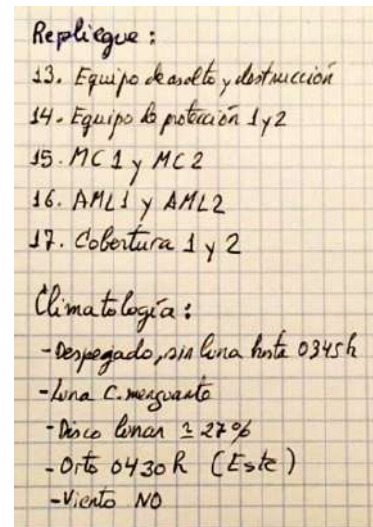 Repliegue:
13. Equipo de asalto y destrucción
14. Equipo de protección 1 y 2
15. MC 1 y MC 2
16. AML1 y AML2
17. Cobertura 1 y 2
Climatología:
- Despegado, sin luna hasta 0345h
- Luna C. menguante
- Disco lunar ≃ 27%
- Orto 0430 h (Este)
- Viento NO